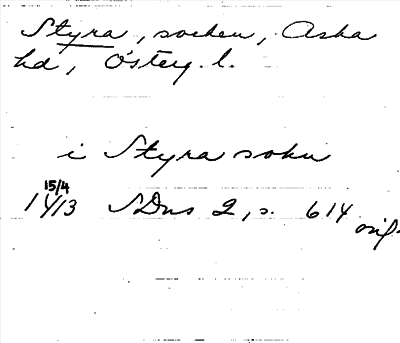 Styra, socken, Aska
hd, Östeg. l.
i Styra sokn
15/4
1413 SDns 2, s. 614
orig.